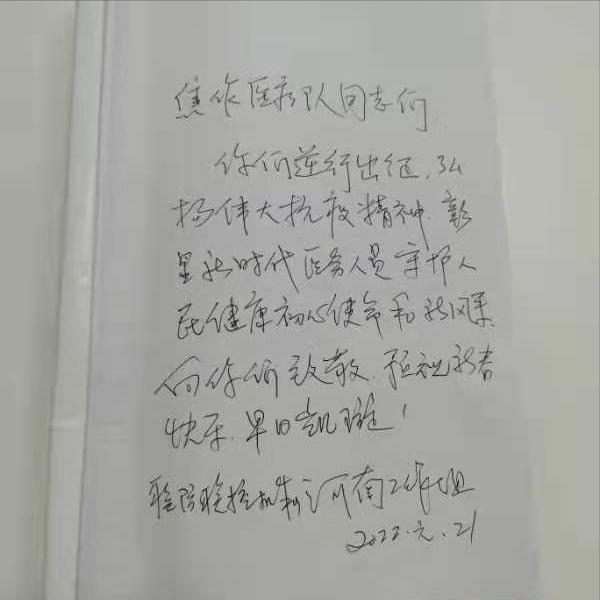 焦作医疗队同志们
你们逆行出征，弘
扬伟大抗疫精神，彰
显新时代医务人员守护人
民健康初心使命和新风采
向你们致敬，预祝新春
快乐，早日凯旋！
联防联控机制河南工作组
2022.元.21